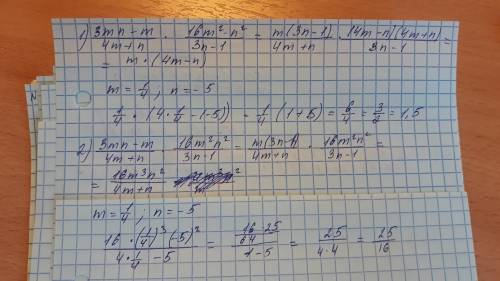 1) (3mn - m)/(4m + n) · (16m² - n²)/(3n - 1) = m(3n - 1)/(4m + n) · (4m - n)(4m + n)/(3n - 1) =
= m · (4m - n)
m = 1/4 ; n = -5
1/4 · (4 · 1/4 - (-5)) = 1/4 (1 + 5) = 6/4 = 3/2 = 1,5
2) (3mn - m)/(4m + n) · 16m²n²/(3n - 1) = m(3n - 1)/(4m + n) · 16m²n²/(3n - 1) =
= 16m³n²/(4m + n)
m = 1/4 ; n = -5
(16 · (1/4)³ (-5)²)/(4 · 1/4 - 5) = ((16 · 25)/64)/(1 - 5) = 25/(4 · 4) = 25/16